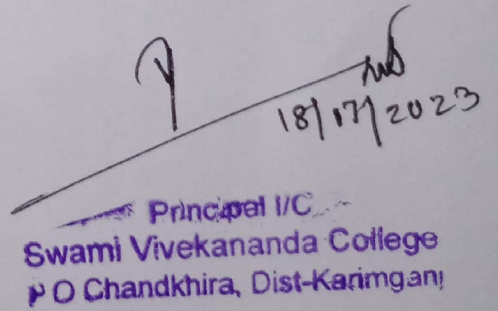 18/07/2023
Principal I/C
Swami Vivekananda College
P O Chandkhira, Dist-Karimganj